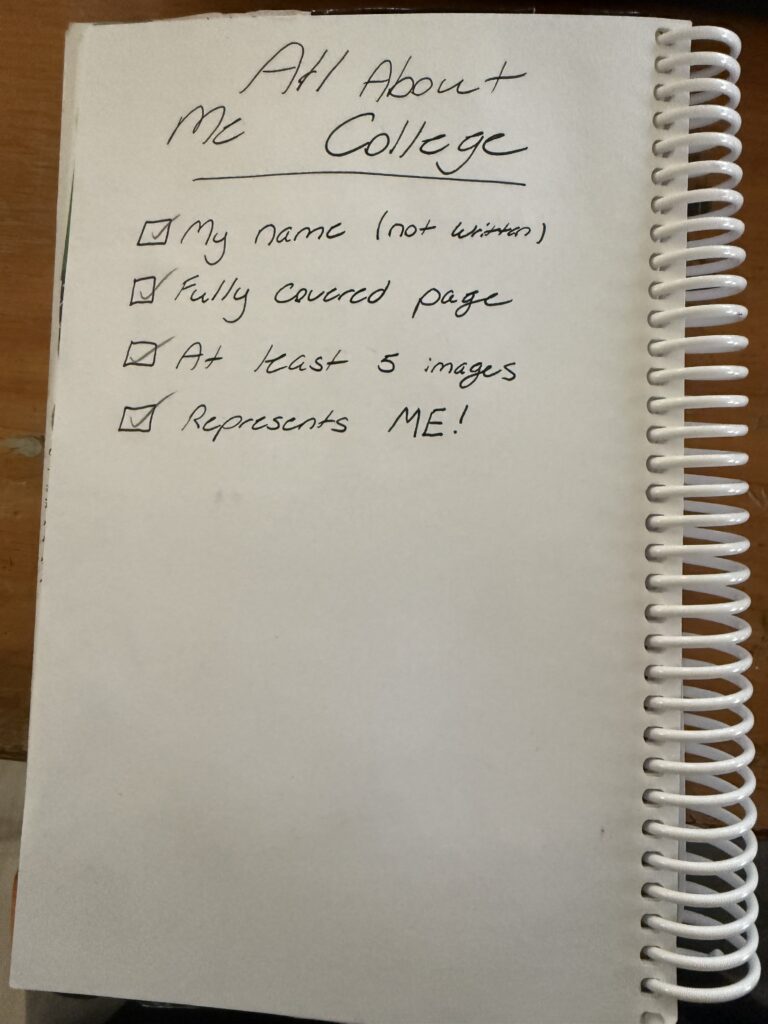 All About
Me College
☑ My name (not written)
☑ Fully covered page
☑ At least 5 images
☑ Represents ME!